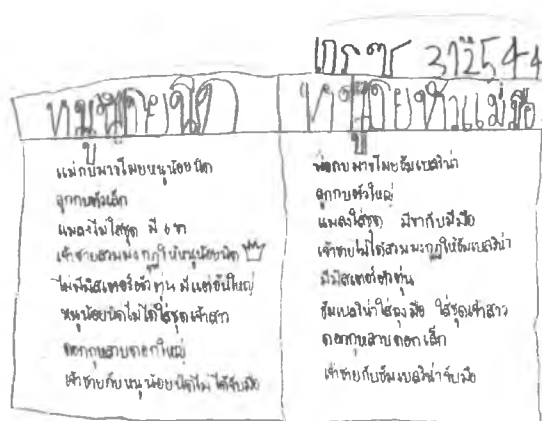 312544
แม่กบมาขโมยหนูน้อยนิด
ลูกกบตัวเล็ก
แมลงไม่ใส่ชุด มี 6 ขา
เจ้าชายสวมมงกุฎให้หนูน้อยนิด
ไม่มีมิสเตอร์ตัวตุ่น มีแต่อันใหญ่
หนูน้อยนิดไม่ได้ใส่ชุดเจ้าสาว
ดอกกุหลาบดอกใหญ่
เจ้าชายกับหนูน้อยนิดไม่ได้จับมือ
พ่อกบมาขโมยธัมเบลิน่า
ลูกกบตัวใหญ่
แมลงใส่ชุด มีขากับมีมือ
เจ้าชายไม่ได้สวมมงกุฎให้ธัมเบลิน่า
มีมิสเตอร์ตัวตุ่น
ธัมเบลิน่าใส่ถุงมือ ใส่ชุดเจ้าสาว
ดอกกุหลาบดอกเล็ก
เจ้าชายกับธัมเบลิน่าจับมือ